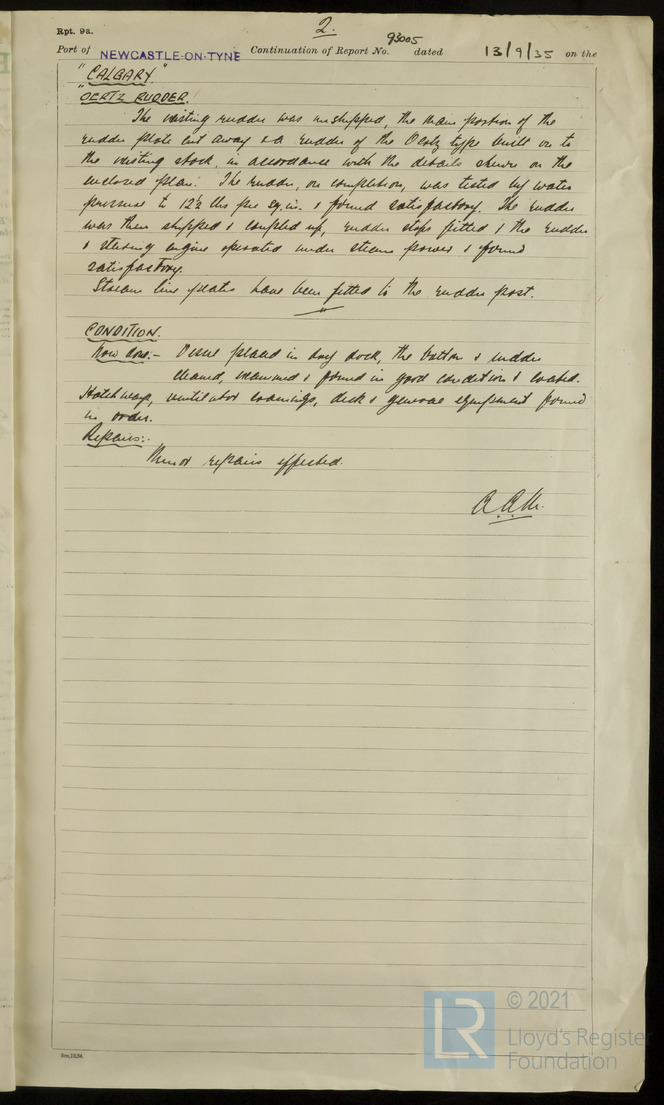 Rpt. 9a.
2.
Port of NEWCASTLE-ON-TYNE Continuation of Report No. 93005 dated 13/9/35 on the
"CALGARY."
"OERTZ RUDDER.
The existing rudder was unshipped, the main portion of the
rudder plate cut away & a rudder of the Oertz type built on to
the existing stock, in accordance with the details shewn on the
enclosed plan. The rudder, on completion, was tested by water
pressure to 12½ lbs per sq. in. & found satisfactory. The rudder
was then shipped & coupled up, rudder stops fitted & the rudder
& steering engine operated under steam power & found
satisfactory.
Stream line plates have been fitted to the rudder post.
CONDITION.
Now done:- Vessel placed in dry dock, the bottom & rudder
cleaned, examined & found in good condition & coated.
Hatchways, ventilator coamings, deck & general equipment found
in order.
Repairs:-
Minor repairs effected.
© 2021
LR
Lloyd's Register
Foundation